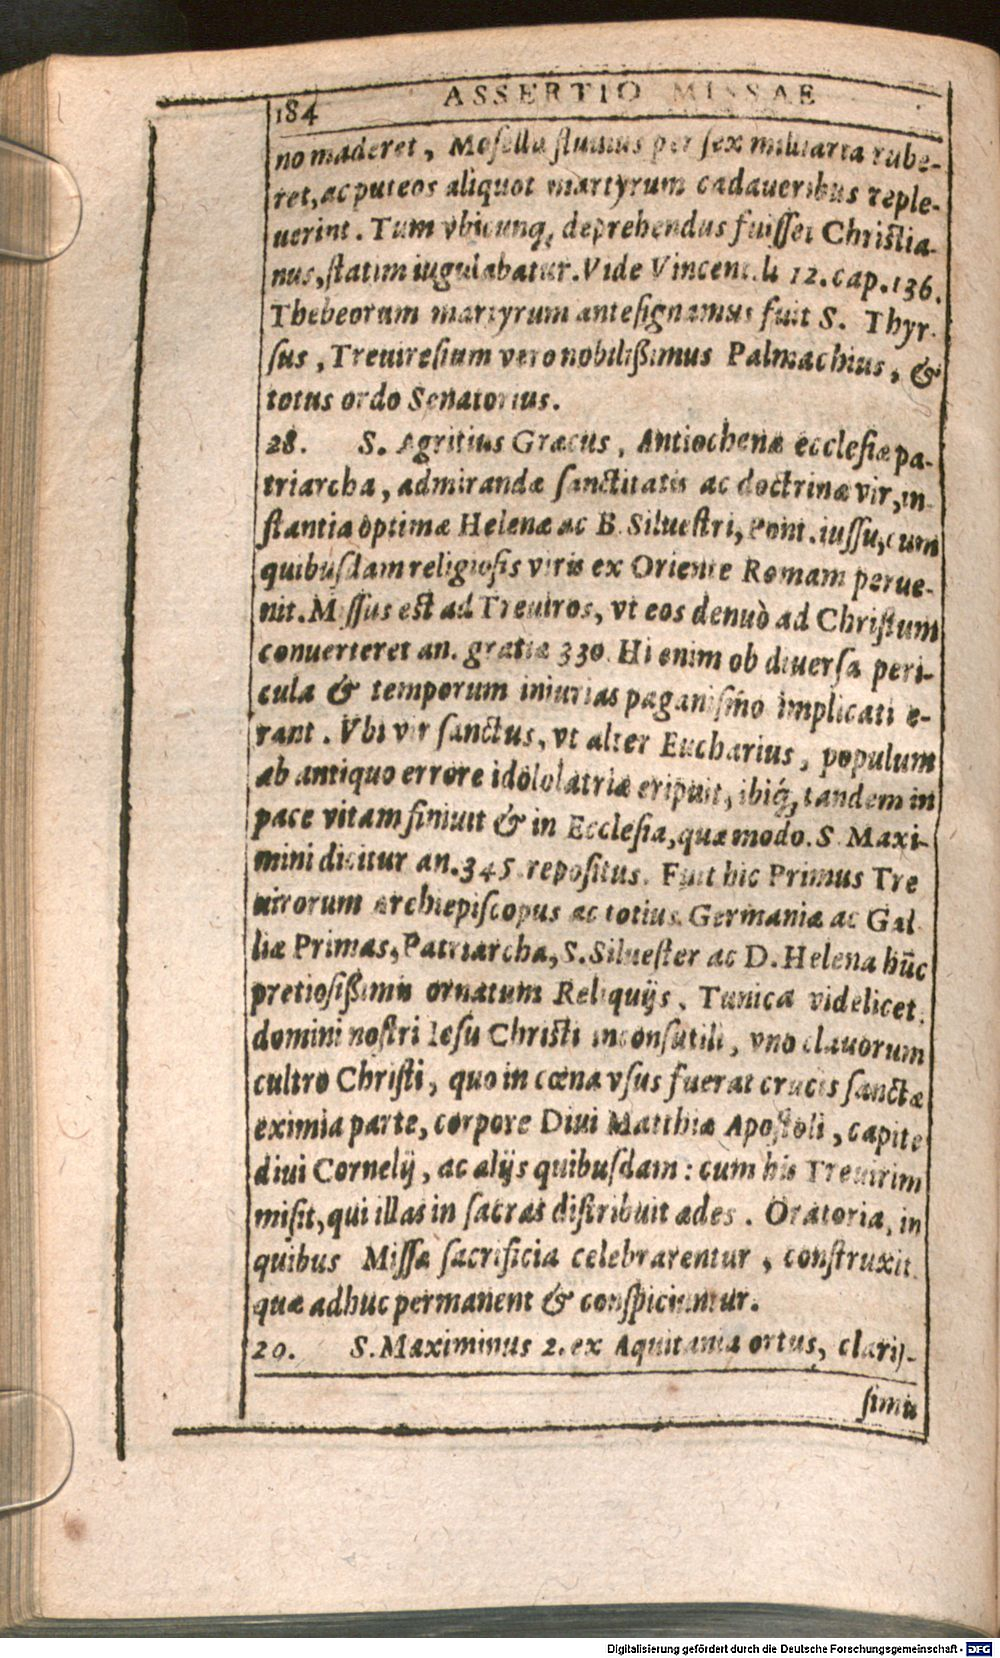 184 ASSERTIO MISSAE
no maderet, Mosella fluuius per sex milliaria rube-
ret, ac puteos aliquot martyrum cadaueribus reple-
uerint. Tum vbicunq; deprehensus fuisset Christia-
nus, statim iugulabatur. Vide Vincent. li 12. cap. 136.
Thebeorum martyrum antesignamus fuit S. Thyr-
sus, Treuiresium vero nobilißimus Palmachius, &
totus ordo Senatorius.
28. S. Agritius Græcus, Antiochenæ ecclesiæ pa-
triarcha, admirandæ sanctitatis ac doctrinæ vir, in-
stantia optimæ Helenæ ac B. Siluestri, Pont. iussu, cum
quibusdam religiosis viris ex Oriente Romam perue-
nit. Missus est ad Treuiros, vt eos denuò ad Christum
conuerteret an. gratiæ 330. Hi enim ob diuersa peri-
cula & temporum iniurias paganismo implicati e-
rant. Vbi vir sanctus, vt alter Eucharius, populum
ab antiquo errore idololatriæ eripuit, ibiq́; tandem in
pace vitam finiuit & in Ecclesia, quæ modo. S. Maxi-
mini dicitur an. 345. repositus. Fuit hic Primus Tre
uirorum archiepiscopus ac totius Germaniæ ac Gal
liæ Primas, Patriarcha, S. Siluester ac D. Helena hūc
pretiosißimis ornatum Reliquijs. Tunica videlicet
domini nostri Iesu Christi inconsutili, vno clauorum
cultro Christi, quo in cœna vsus fuerat crucis sanctæ
eximia parte, corpore Diui Matthiæ Apostoli, capite
diui Cornelij, ac alijs quibusdam: cum his Treuirim
misit, qui illas in sacras distribuit ades. Oratoria, in
quibus Missæ sacrificia celebrarentur, construxit
quæ adhuc permanent & conspiciuntur.
20. S. Maximinus 2. ex Aquitania ortus, claris-
simis
Digitalisierung gefördert durch die Deutsche Forschungsgemeinschaft - DFG